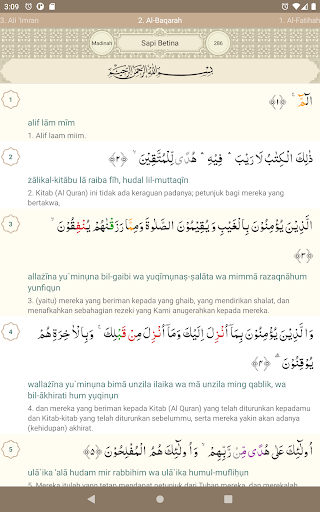 3:09
3. Ali 'Imran 2. Al-Baqarah 1. Al-Fatihah
Madinah Sapi Betina 286
بِسْمِ اللّٰهِ الرَّحْمٰنِ الرَّحِيْمِ
1 الۤمّۤ ۚ ﴿١﴾
alif lām mīm
1. Alif laam miim.
2 ذٰلِكَ الْكِتٰبُ لَا رَيْبَ ۛ فِيْهِ ۛ هُدًى لِّلْمُتَّقِيْنَ ۙ ﴿٢﴾
żālikal-kitābu lā raiba fīh, hudal lil-muttaqīn
2. Kitab (Al Quran) ini tidak ada keraguan padanya; petunjuk bagi mereka yang
bertakwa,
3 الَّذِيْنَ يُؤْمِنُوْنَ بِالْغَيْبِ وَيُقِيْمُوْنَ الصَّلٰوةَ وَمِمَّا رَزَقْنٰهُمْ يُنْفِقُوْنَ ۙ
﴿٣﴾
allażīna yu`minụna bil-gaibi wa yuqīmụnaṣ-ṣalāta wa mimmā razaqnāhum
yunfiqụn
3. (yaitu) mereka yang beriman kepada yang ghaib, yang mendirikan shalat, dan
menafkahkan sebahagian rezeki yang Kami anugerahkan kepada mereka.
4 وَالَّذِيْنَ يُؤْمِنُوْنَ بِمَآ اُنْزِلَ اِلَيْكَ وَمَآ اُنْزِلَ مِنْ قَبْلِكَ ۚ وَبِالْاٰخِرَةِ هُمْ
يُوْقِنُوْنَ ۗ ﴿٤﴾
wallażīna yu`minụna bimā unzila ilaika wa mā unzila ming qablik, wa
bil-ākhirati hum yụqinụn
4. dan mereka yang beriman kepada Kitab (Al Quran) yang telah diturunkan kepadamu
dan Kitab-kitab yang telah diturunkan sebelummu, serta mereka yakin akan adanya
(kehidupan) akhirat.
5 اُولٰۤىِٕكَ عَلٰى هُدًى مِّنْ رَّبِّهِمْ ۙ وَاُولٰۤىِٕكَ هُمُ الْمُفْلِحُوْنَ ﴿٥﴾
ulā`ika 'alā hudam mir rabbihim wa ulā`ika humul-mufliḥụn
5. Mereka itulah yang tetap mendapat petunjuk dari Tuhan mereka, dan merekalah